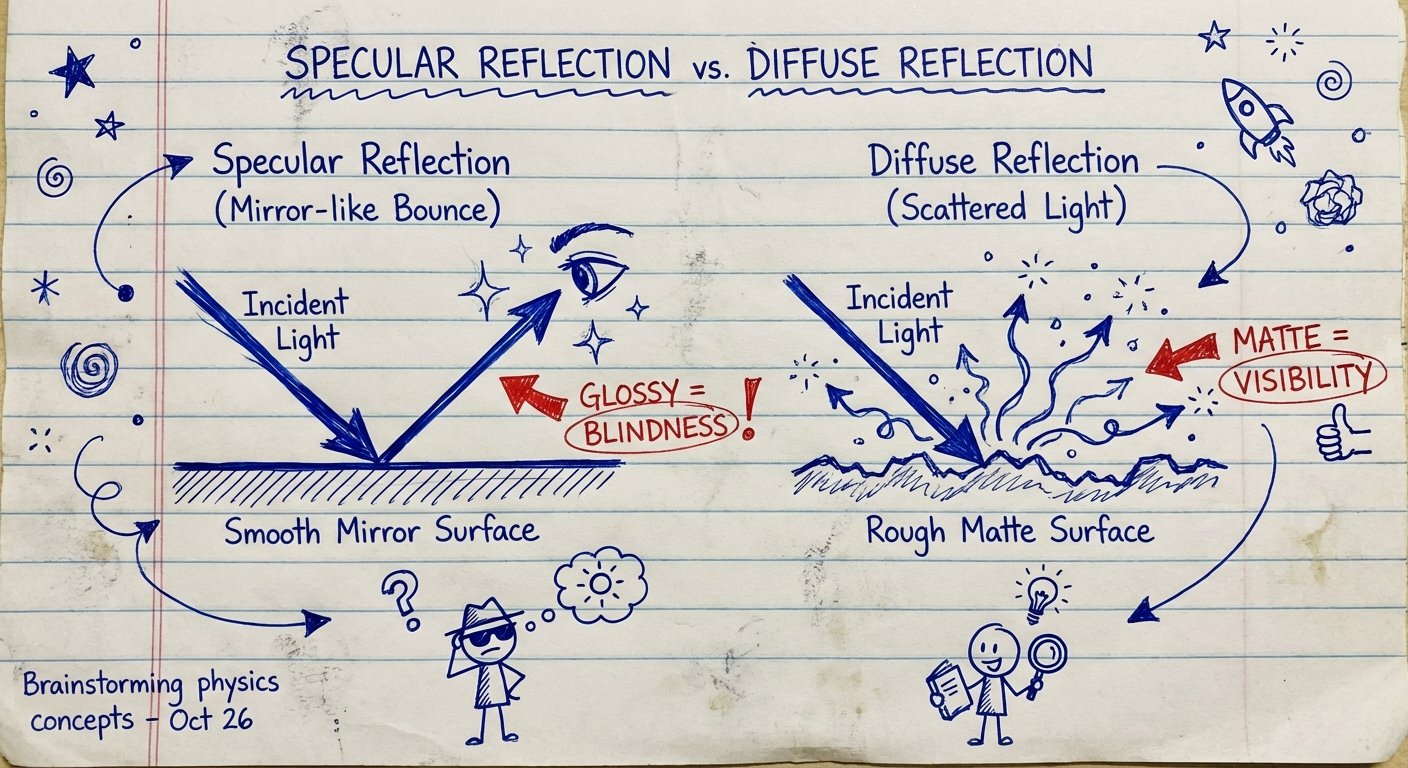 SPECULAR REFLECTION vs. DIFFUSE REFLECTION
Specular Reflection
(Mirror-like Bounce)
Incident
Light
GLOSSY =
BLINDNESS!
Smooth Mirror Surface
?
Diffuse Reflection
(Scattered Light)
Incident
Light
MATTE =
VISIBILITY
Rough Matte Surface
Brainstorming physics
concepts - Oct 26